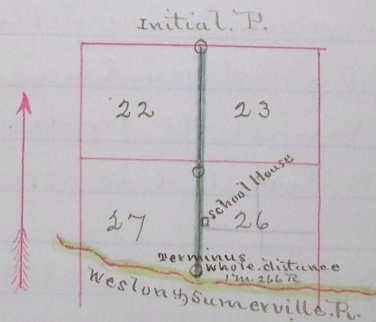 Initial. P.
22
23
school House
27
26
terminus
whole. distance
1 m. 266 R
Weston & Sumerville. R.